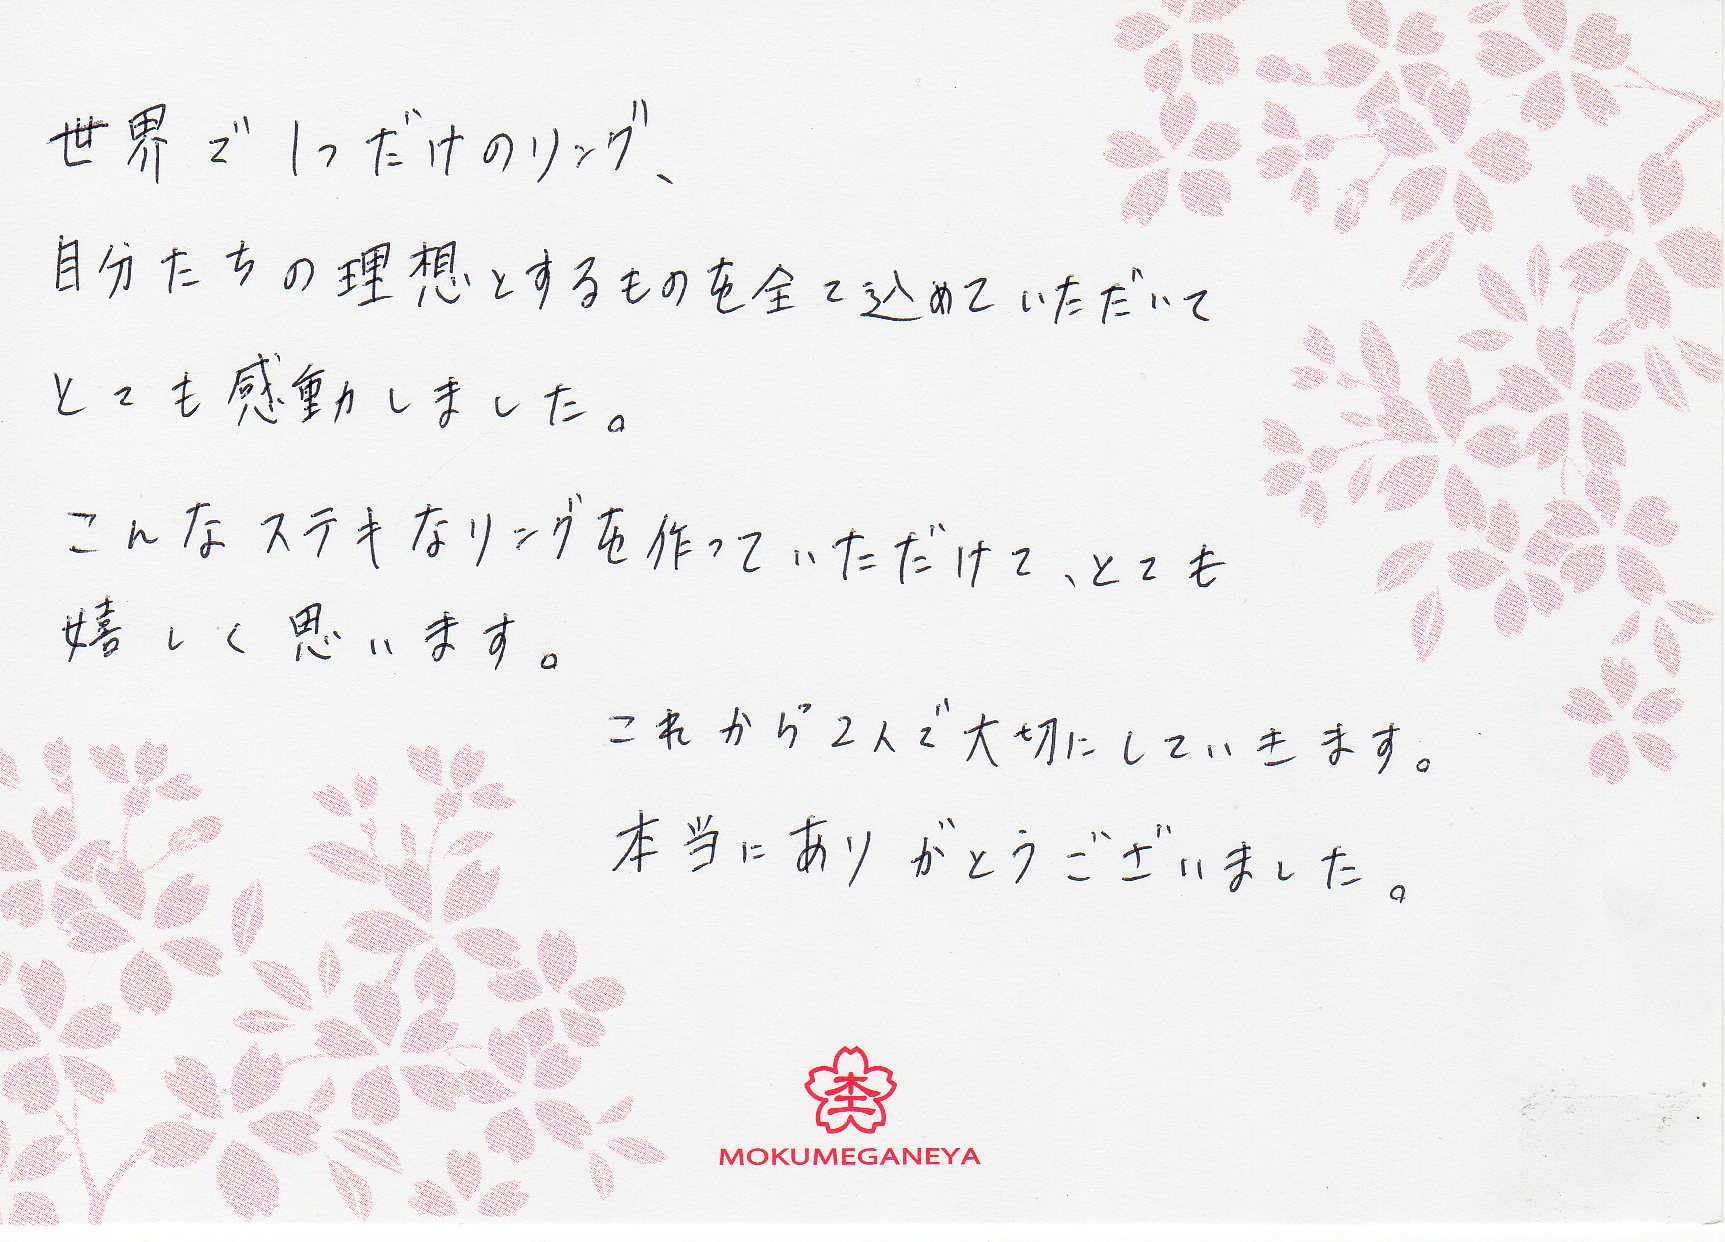 世界で1つだけのリング、
自分たちの理想とするものを全て込めていただいて
とても感動しました。
こんなステキなリングを作っていただけて、とても
嬉しく思います。
これから2人で大切にしていきます。
本当にありがとうございました。
MOKUMEGANEYA